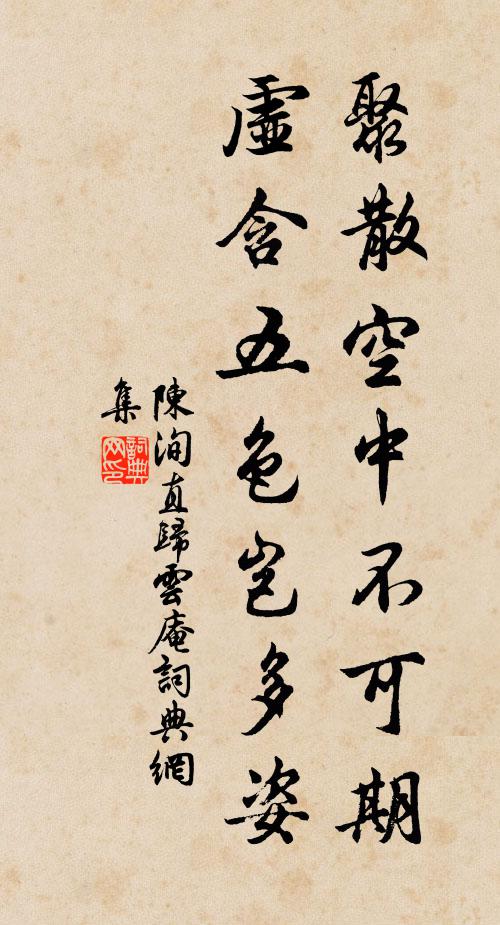 聚散空中不可期
虛含五色豈多姿
陳洵直歸雲庵詞典網
集
詞典网印